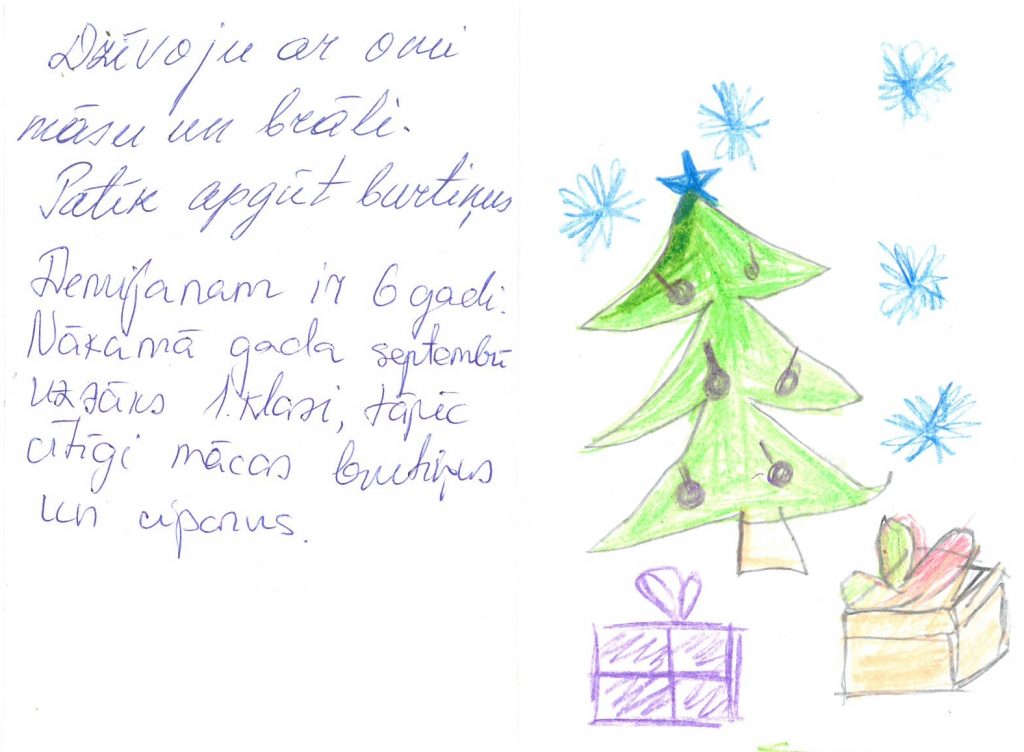 Dzīvoju ar omi
māsu un brāli.
Patīk apgūt burtiņus
Demijanam ir 6 gadi.
Nākamā gada septembrī
uzsāks 1. klasi, tāpēc
cītīgi mācas burtiņus
un ciparus.